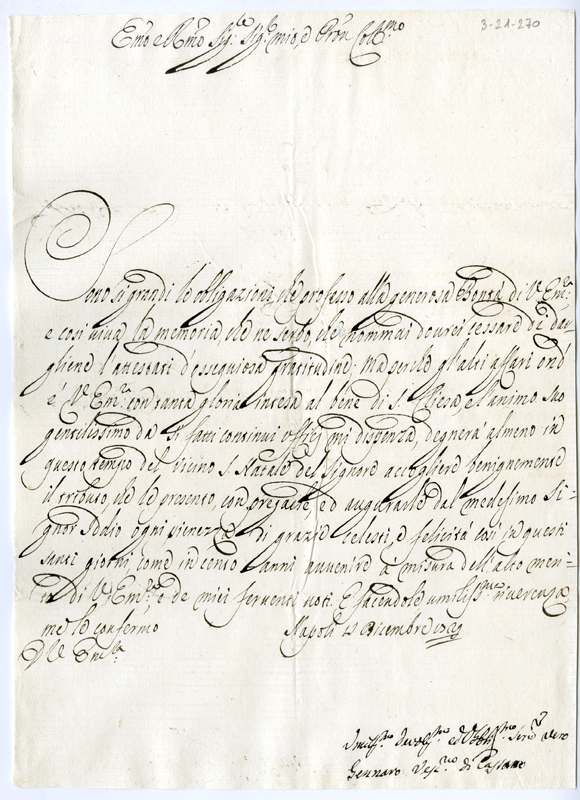 3-21-270
Emo e Rmo Sig.re Sig.re mio, e Pron Collmo
Sono si grandi le obligazioni, che professo alla generosa Bontà di V. Em.a
e così viva la memoria, che ne serbo, che nommai dovrei cessare di dar
gliene l'attestati d'ossequiosa gratitudine: Ma perche gl'altri affari ond'
è V. Em.a con tanta gloria intesa al bene di S. Chiesa, e l'animo suo
gentilissimo da si fatti continui officj mi dispenza, degnerà almeno in
questo tempo del vicino S. Natale del Signore accogliere benignamente
il tributo, che le presento, con pregarle, ed augurarle dal medesimo Si=
gnor Iddio ogni pienezza di grazie celesti, e felicità così in questi
santi giorni, come in cento anni avvenire à misura dell'alto meri=
to di V. Em.za e de miei ferventi voti. E facendole umiliss.ma riverenza
me le confermo
Napoli Dicembre
D V Em.za
Umiliss.mo Devotiss.mo ed Obligmo Serv.r vero
Gennaro Vesc.vo di